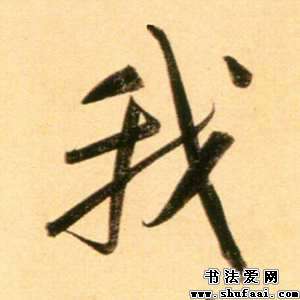 我
书法爱网
www.shufaai.com